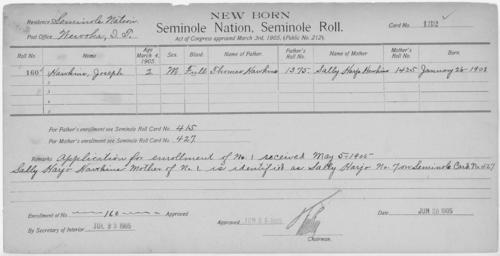 NEW BORN
Residence, Seminole Nation
Seminole Nation, Seminole Roll.
Card No.
Post Office, Wewoka, I. T.
Act of Congress approved March 3rd, 1905, (Public No. 212).
Roll No. Name Age March 4, 1905. Sex. Blood. Name of Father. Father's Roll No. Name of Mother Mother's Roll No. Born.
160 Hawkins, Joseph 2 M Full Thomas Hawkins 1375 Sally Harjo Hawkins 1425 January 26 1903
2
3
4
5
For Father's enrollment see Seminole Roll Card No. 415
For Mother's enrollment see Seminole Roll Card No. 427
Remarks Application for enrollment of No. 1 received May 5-1905
Sally Harjo Hawkins Mother of No. 1 is identified as Sally Harjo No. 7 on Seminole Card No 427
Enrollment of No. 160 Approved
By Secretary of Interior JUL 1905
Approved 1905
Chairman.
Date JUN 1905